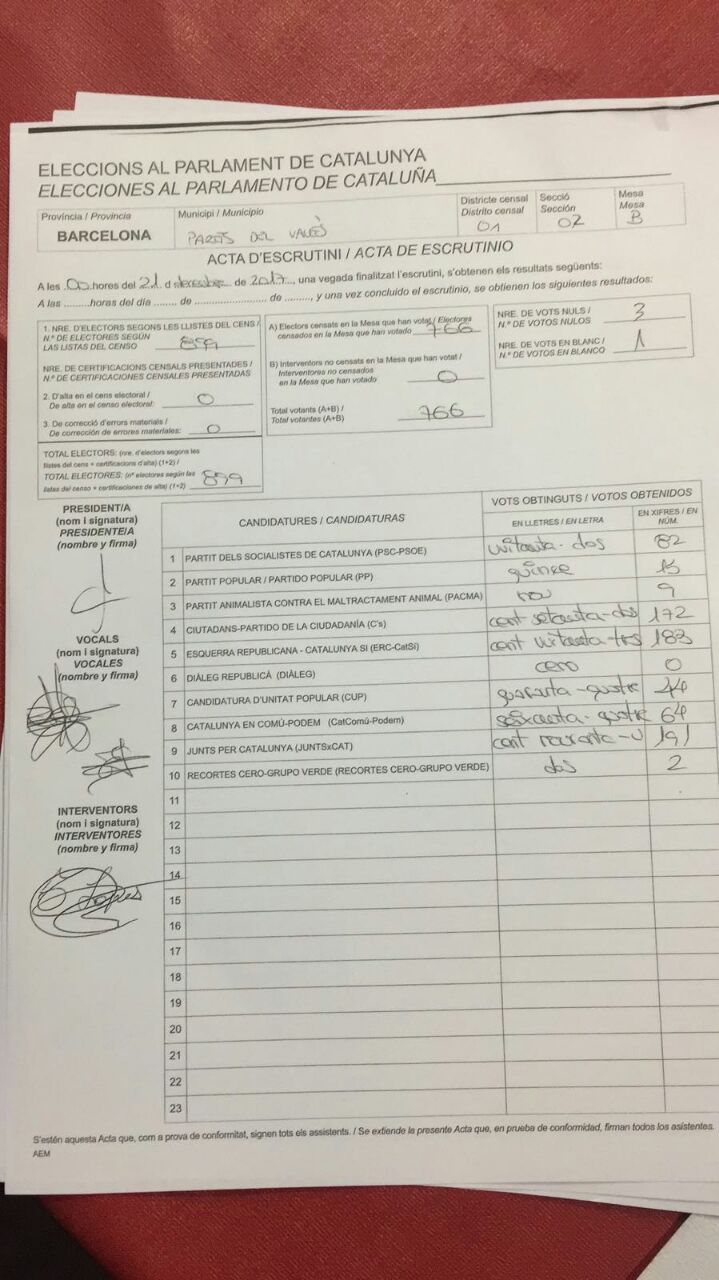 ELECCIONS AL PARLAMENT DE CATALUNYA
ELECCIONES AL PARLAMENTO DE CATALUÑA
Província / Provincia
BARCELONA
Municipi / Municipio
PARETS DEL VALLÈS
Districte censal
Distrito censal
01
Secció
Sección
02
Mesa
Mesa
B
ACTA D'ESCRUTINI / ACTA DE ESCRUTINIO
A les 00 hores del 21 d desembre de 2017, una vegada finalitzat l'escrutini, s'obtenen els resultats següents:
A las ........horas del día ........ de ......................... de ........, y una vez concluido el escrutinio, se obtienen los siguientes resultados:
1. NRE. D'ELECTORS SEGONS LES LLISTES DEL CENS /
N.º DE ELECTORES SEGÚN
LAS LISTAS DEL CENSO 859
NRE. DE CERTIFICACIONS CENSALS PRESENTADES /
N.º DE CERTIFICACIONES CENSALES PRESENTADAS
2. D'alta en el cens electoral /
De alta en el censo electoral: 0
3. De correcció d'errors materials /
De corrección de errores materiales: 0
TOTAL ELECTORS: (nre. d'electors segons les
llistes del cens + certificacions d'alta) (1+2) /
TOTAL ELECTORES: (nº electores según las
listas del censo + certificaciones de alta) (1+2) 859
A) Electors censats en la Mesa que han votat / Electores
censados en la Mesa que han votado 766
B) Interventors no censats en la Mesa que han votat /
Interventores no censados
en la Mesa que han votado 0
Total votants (A+B) /
Total votantes (A+B) 766
NRE. DE VOTS NULS /
N.º DE VOTOS NULOS 3
NRE. DE VOTS EN BLANC /
N.º DE VOTOS EN BLANCO 1
PRESIDENT/A
(nom i signatura)
PRESIDENTE/A
(nombre y firma)
VOCALS
(nom i signatura)
VOCALES
(nombre y firma)
INTERVENTORS
(nom i signatura)
INTERVENTORES
(nombre y firma)
CANDIDATURES / CANDIDATURAS
VOTS OBTINGUTS / VOTOS OBTENIDOS
EN LLETRES / EN LETRA
EN XIFRES / EN NÚM.
1 PARTIT DELS SOCIALISTES DE CATALUNYA (PSC-PSOE) vuitanta-dos 82
2 PARTIT POPULAR / PARTIDO POPULAR (PP) quinze 15
3 PARTIT ANIMALISTA CONTRA EL MALTRACTAMENT ANIMAL (PACMA) nou 9
4 CIUTADANS-PARTIDO DE LA CIUDADANÍA (C's) cent setanta-dos 172
5 ESQUERRA REPUBLICANA - CATALUNYA SI (ERC-CatSi) cent vuitanta-tres 183
6 DIÀLEG REPUBLICÀ (DIÀLEG) cero 0
7 CANDIDATURA D'UNITAT POPULAR (CUP) quaranta-quatre 44
8 CATALUNYA EN COMÚ-PODEM (CatComú-Podem) seixanta-quatre 64
9 JUNTS PER CATALUNYA (JUNTSxCAT) cent noranta-u 191
10 RECORTES CERO-GRUPO VERDE (RECORTES CERO-GRUPO VERDE) dos 2
11
12
13
14
15
16
17
18
19
20
21
22
23
S'estén aquesta Acta que, com a prova de conformitat, signen tots els assistents. / Se extiende la presente Acta que, en prueba de conformidad, firman todos los asistentes.
AEM